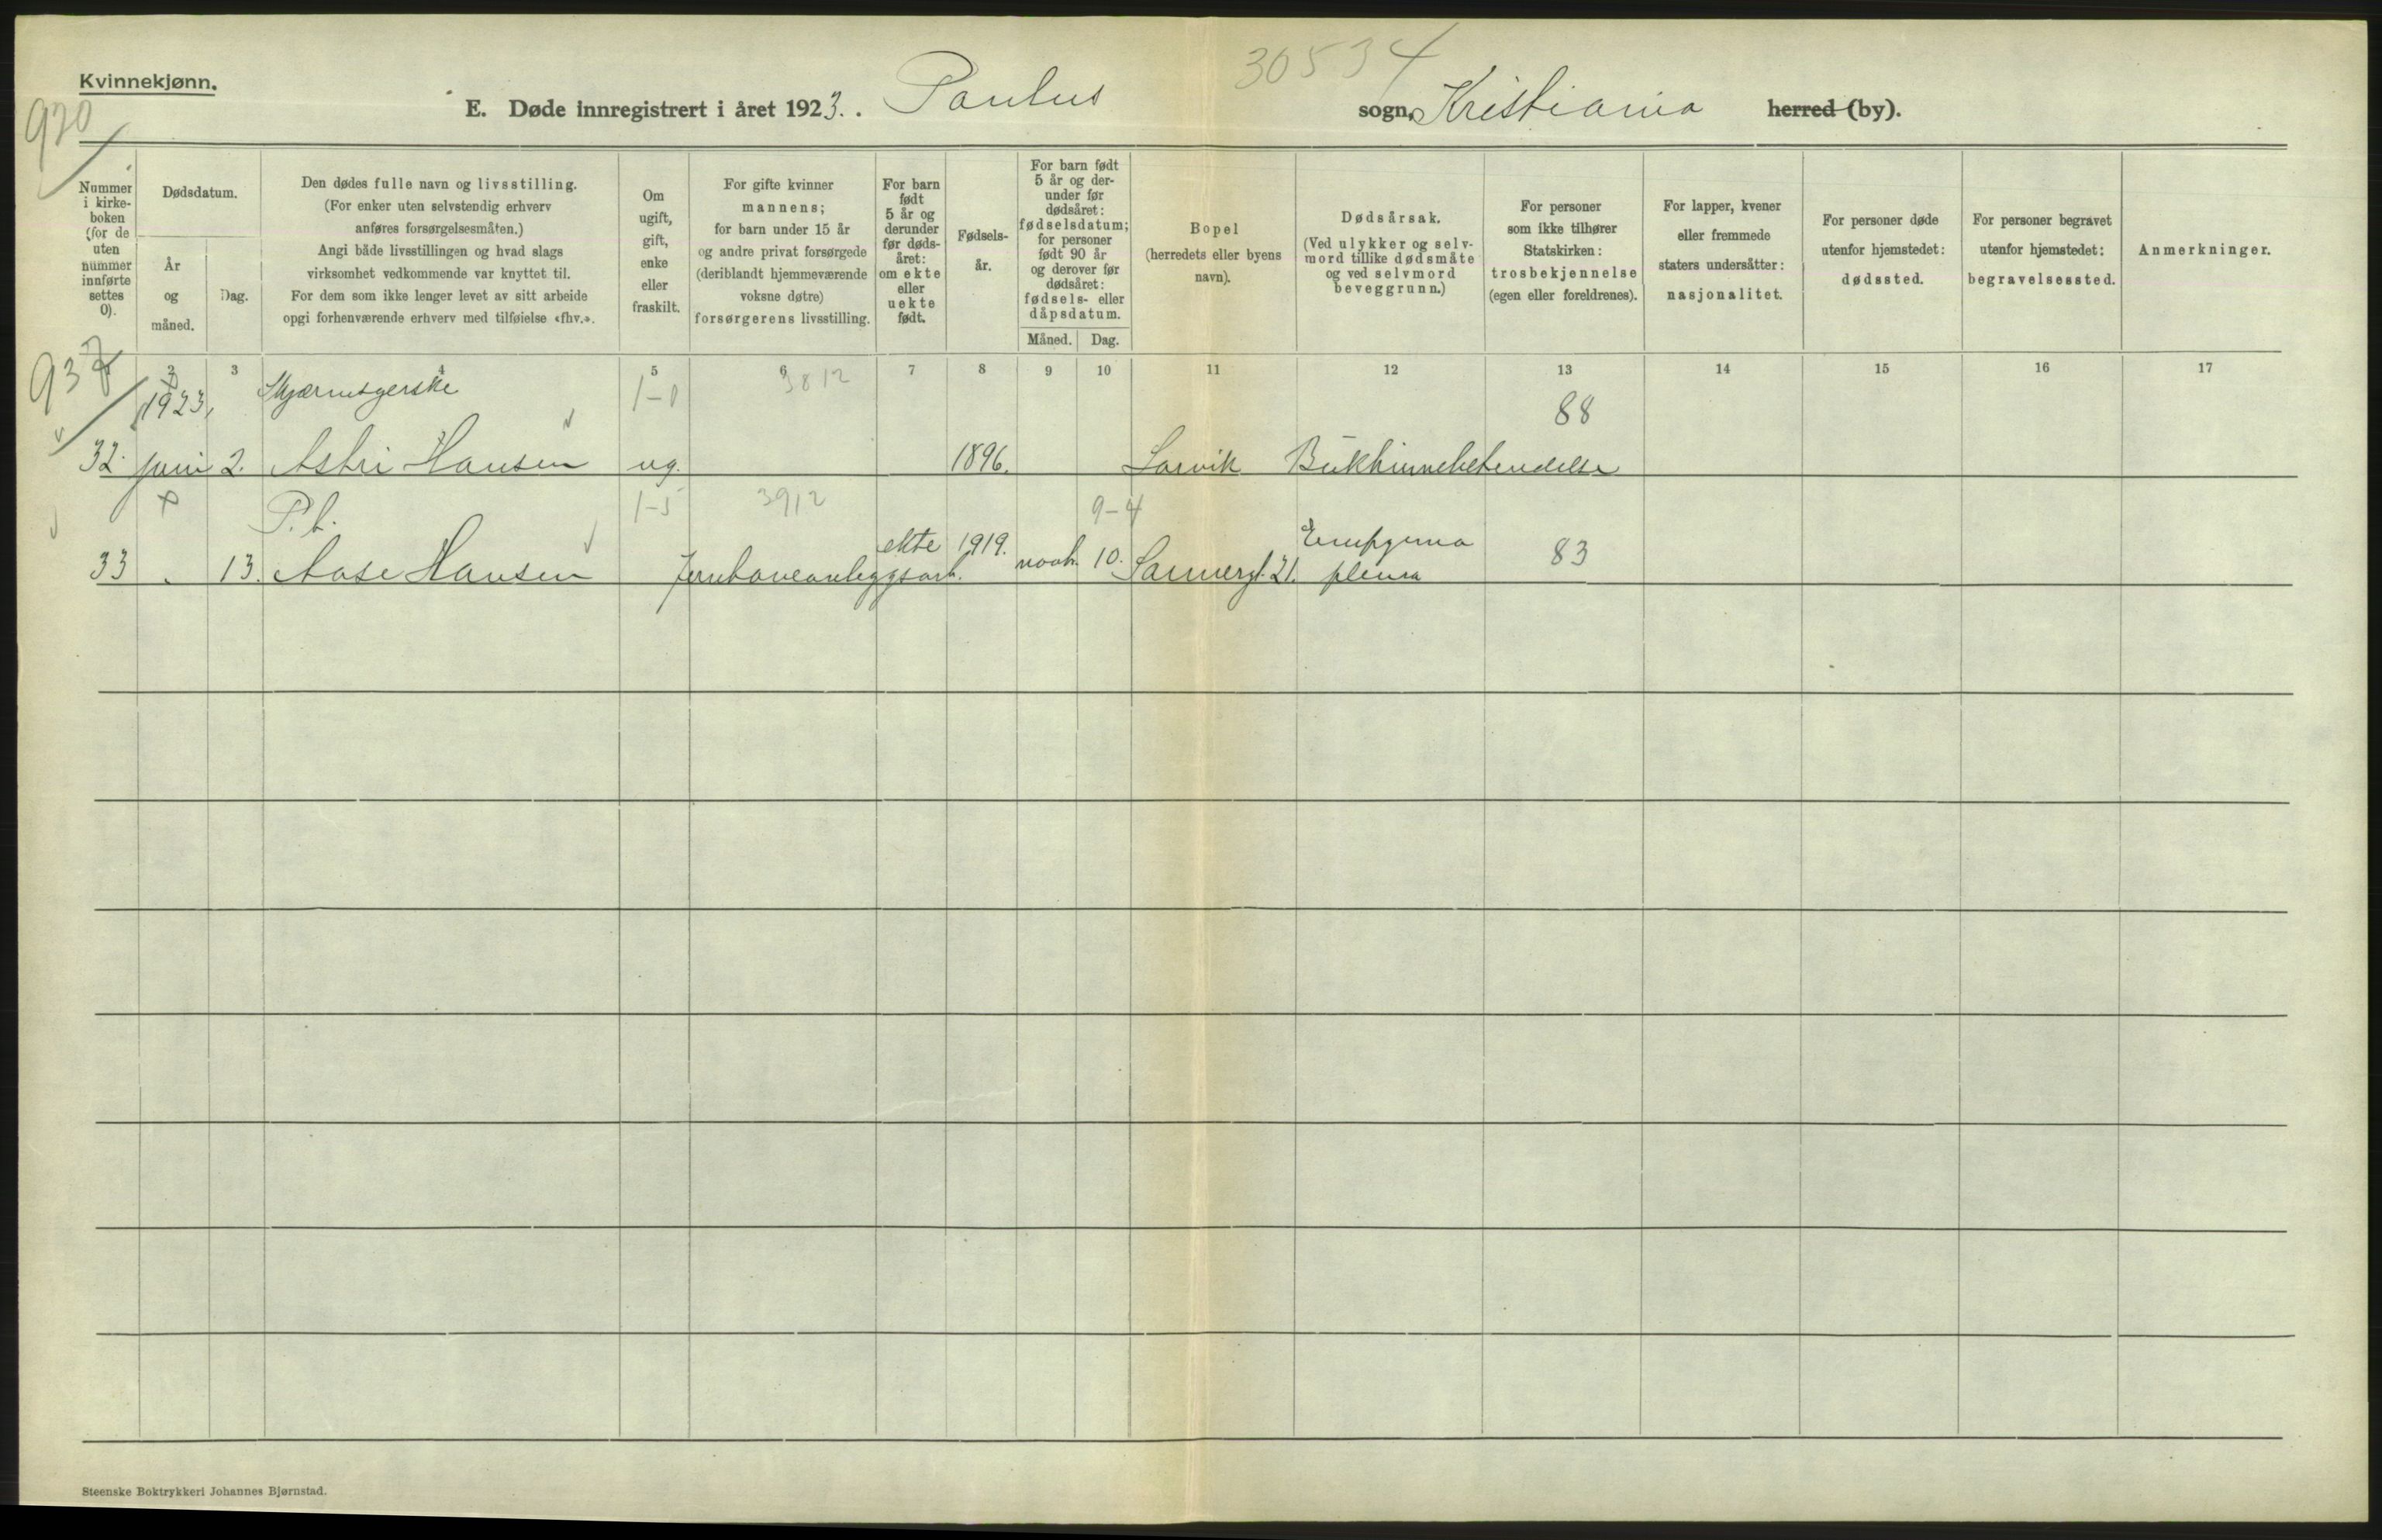 Kvinnekjønn.
30534
E. Døde innregistrert i året 1923. . Paulus sogn, Kristiania herred (by).
920
Nummer i kirke-boken (for de uten nummer innførte settes 0).
Dødsdatum.
År og måned.
Dag.
Den dødes fulle navn og livsstilling.
(For enker uten selvstendig erhverv
anføres forsørgelsesmåten.)
Angi både livsstillingen og hvad slags
virksomhet vedkommende var knyttet til.
For dem som ikke lenger levet av sitt arbeide
opgi forhenværende erhverv med tilføielse «fhv.».
Om ugift, gift, enke eller fraskilt.
For gifte kvinner
mannens;
for barn under 15 år
og andre privat forsørgede
(deriblandt hjemmeværende
voksne døtre)
forsørgerens livsstilling.
For barn født 5 år og derunder før døds-året: om ekte eller uekte født.
Fødsels-år.
For barn født 5 år og der-under før dødsåret: fødselsdatum; for personer født 90 år og derover før dødsåret: fødsels- eller dåpsdatum.
Måned. Dag.
Bopel
(herredets eller byens
navn).
Dødsårsak.
(Ved ulykker og selv-
mord tillike dødsmåte
og ved selvmord
beveggrunn.)
For personer
som ikke tilhører
Statskirken:
trosbekjennelse
(egen eller foreldrenes).
For lapper, kvener
eller fremmede
staters undersåtter:
nasjonalitet.
For personer døde
utenfor hjemstedet:
dødssted.
For personer begravet
utenfor hjemstedet:
begravelsessted.
Anmerkninger.
2 3 4 5 6 7 8 9 10 11 12 13 14 15 16 17
937
1923, 1-0 3812 88
32. juni 2. Astri Hansen ug. 1896. Larvik Bukhinnebetendelse
P.b. 1-5 3912 9-4
33 . 13. Aase Hansen Jernbaneanleggsarb. ekte 1919. novb. 10. Sannergt. 21. Empyema pleura 83
Steenske Boktrykkeri Johannes Bjørnstad.